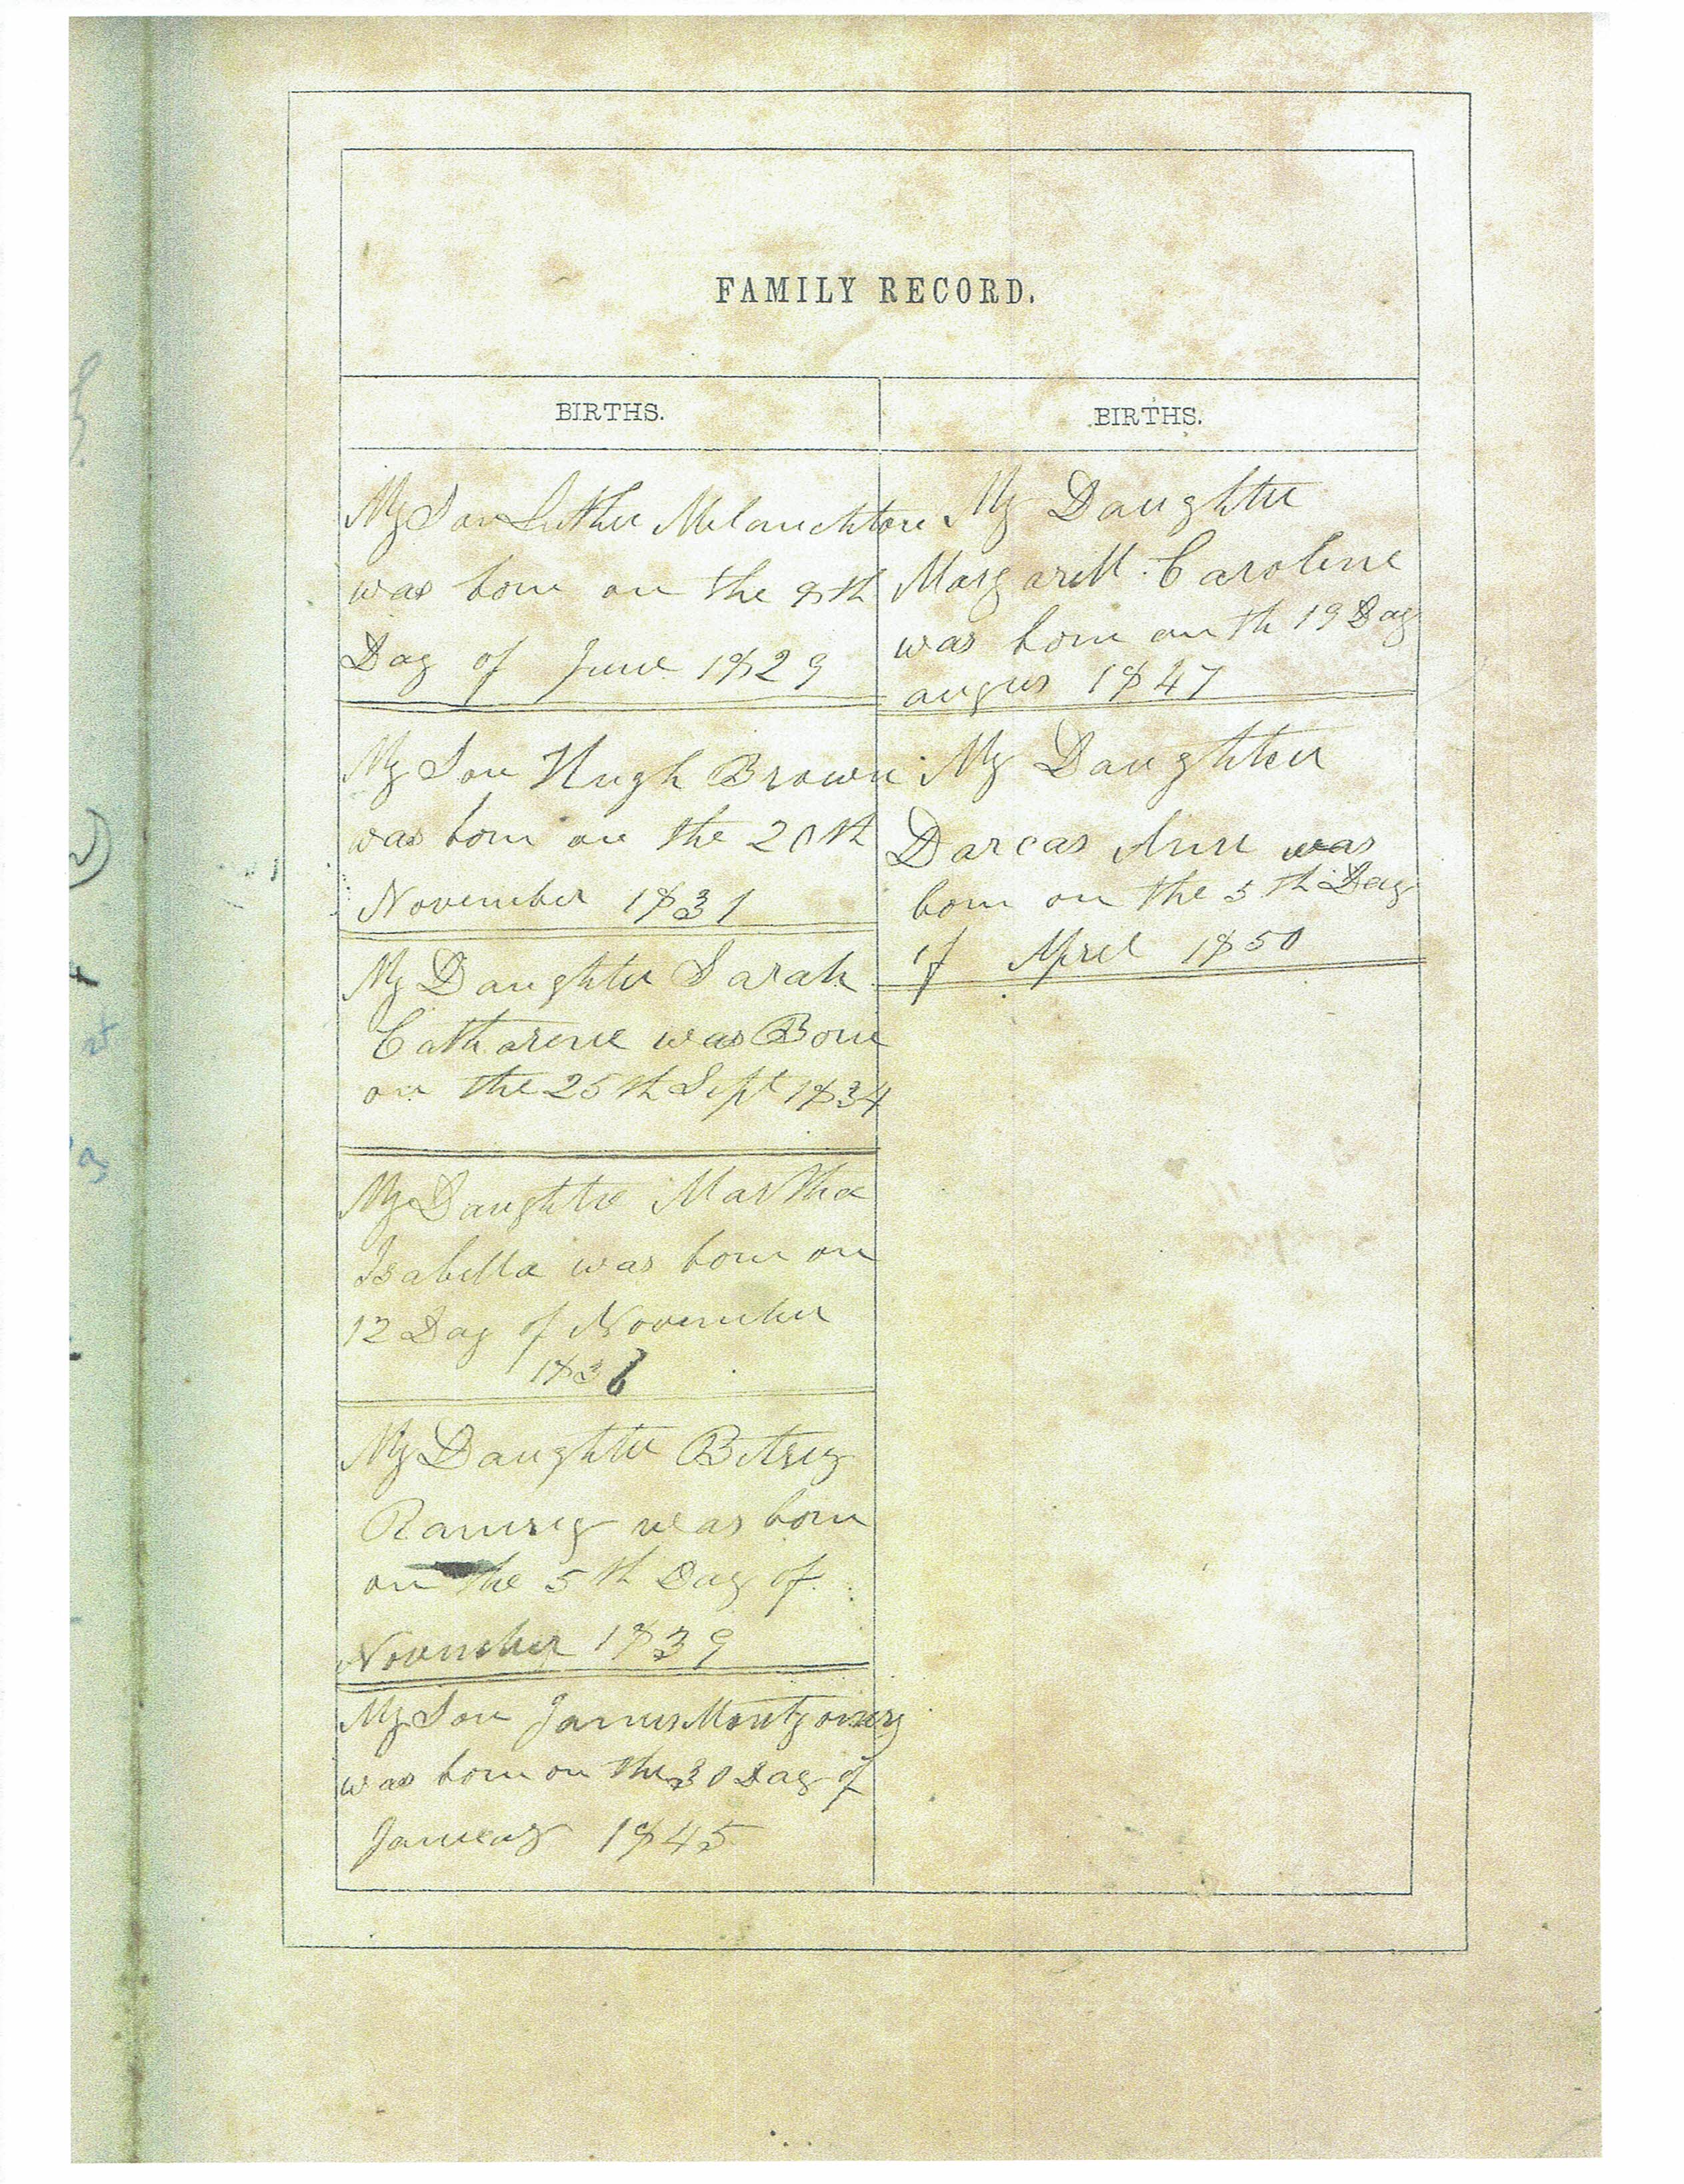 FAMILY RECORD.
BIRTHS.
My Son Luther Melanchton
was born on the 9th
Day of June 1829
My Son Hugh Brown
was born on the 20th
November 1831
My Daughter Sarah
Catharene was Born
on the 25th Sept 1834
My Daughter Martha
Isabella was born on
12 Day of November
1836
My Daughter Betsey
Ramsey was born
on the 5th Day of
November 1839
My Son James Montgomery
was born on the 30 Day of
January 1845
BIRTHS.
My Daughter
Margarett Caroline
was born on th 19 Day
augus 1847
My Daughter
Darcas Ann was
born on the 5th Day
of Aprel 1850